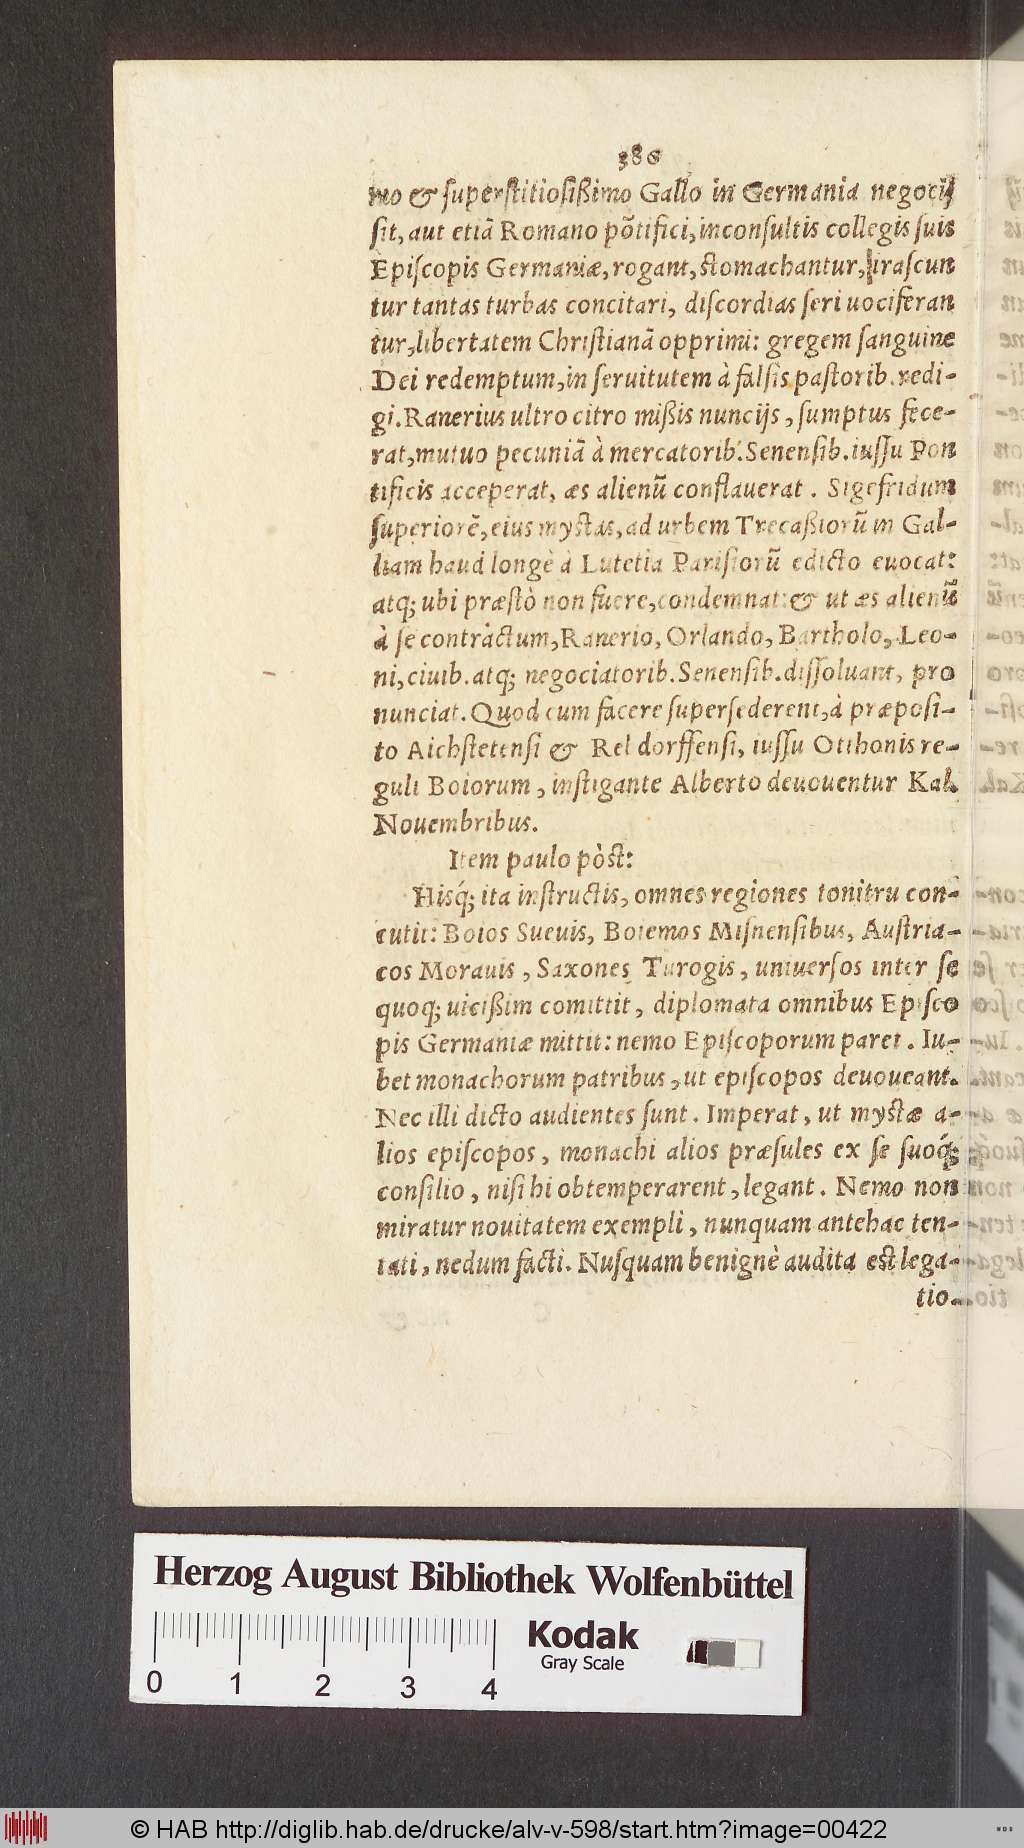 386
mo & superstitiosißimo Gallo in Germania negocij
sit, aut etiã Romano põtifici, inconsultis collegis suis
Episcopis Germaniæ, rogant, stomachantur, irascun
tur tantas turbas concitari, discordias seri uociferan
tur, libertatem Christianã opprimi: gregem sanguine
Dei redemptum, in seruitutem à falsis pastorib. redi-
gi. Ranerius ultro citro mißis nuncijs, sumptus fece-
rat, mutuo pecuniã à mercatorib. Senensib. iussu Pon
tificis acceperat, æs alienũ conflauerat. Sigefridum
superiorẽ, eius mystas, ad urbem Trecaßiorũ in Gal-
liam haud longè à Lutetia Parisiorũ edicto euocat:
atq; ubi præstò non fuere, condemnat: & ut æs alienũ
à se contràctum, Ranerio, Orlando, Bartholo, Leo-
ni, ciuib. atq; negociatorib. Senensib. dissoluant, pro
nunciat. Quod cum facere supersederent, à præposi-
to Aichstetensi & Rel dorffensi, iussu Otthonis re-
guli Boiorum, instigante Alberto deuouentur Kal.
Nouembribus.
Item paulo pòst:
Hisq́; ita instructis, omnes regiones tonitru con-
cutit: Boios Sueuis, Boiemos Misnensibus, Austria-
cos Morauis, Saxones Turogis, uniuersos inter se
quoq; uicißim comittit, diplomata omnibus Episco
pis Germaniæ mittit: nemo Episcoporum paret. Iu-
bet monachorum patribus, ut episcopos deuoueant.
Nec illi dicto audientes sunt. Imperat, ut mystæ a-
lios episcopos, monachi alios præsules ex se suoq́;
consilio, nisi hi obtemperarent, legant. Nemo non
miratur nouitatem exempli, nunquam antehac ten-
tati, nedum facti. Nusquam benignè audita est lega-
tio.
Herzog August Bibliothek Wolfenbüttel
Kodak
Gray Scale
0 1 2 3 4
© HAB http://diglib.hab.de/drucke/alv-v-598/start.htm?image=00422